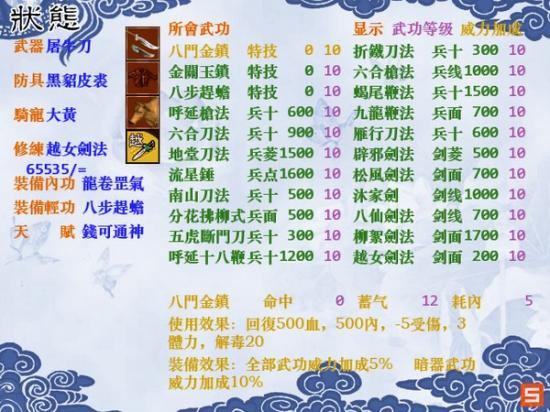 狀態
所會武功 显示 武功等级 威力加成
武器 屠牛刀
防具 黑貂皮裘
騎寵 大黄
修練 越女劍法
65535/=
裝備內功 龍卷罡氣
裝備輕功 八步趕蟾
天賦 錢可通神
越
八門金鎖 特技 0 10
金關玉鎖 特技 0 10
八步趕蟾 特技 0 10
呼延槍法 兵十 600 10
六合刀法 兵十 900 10
地堂刀法 兵菱 1500 10
流星錘 兵点 1600 10
南山刀法 兵十 500 10
分花拂柳式 兵面 500 10
五虎斷門刀 兵十 300 10
呼延十八鞭 兵十 1200 10
折鐵刀法 兵十 300 10
六合槍法 兵线 1000 10
蝎尾鞭法 兵十 1500 10
九龍鞭法 兵面 700 10
雁行刀法 兵十 600 10
辟邪劍法 剑菱 500 10
松風劍法 剑面 700 10
沐家劍 剑线 1000 10
八仙劍法 剑线 700 10
柳絮劍法 剑面 1700 10
越女劍法 剑面 200 10
八門金鎖 命中 0 蓄气 12 耗内 5
使用效果：回復500血，500内，-5受傷，3
體力，解毒20
裝備效果：全部武功威力加成5% 暗器武功
威力加成10%
S